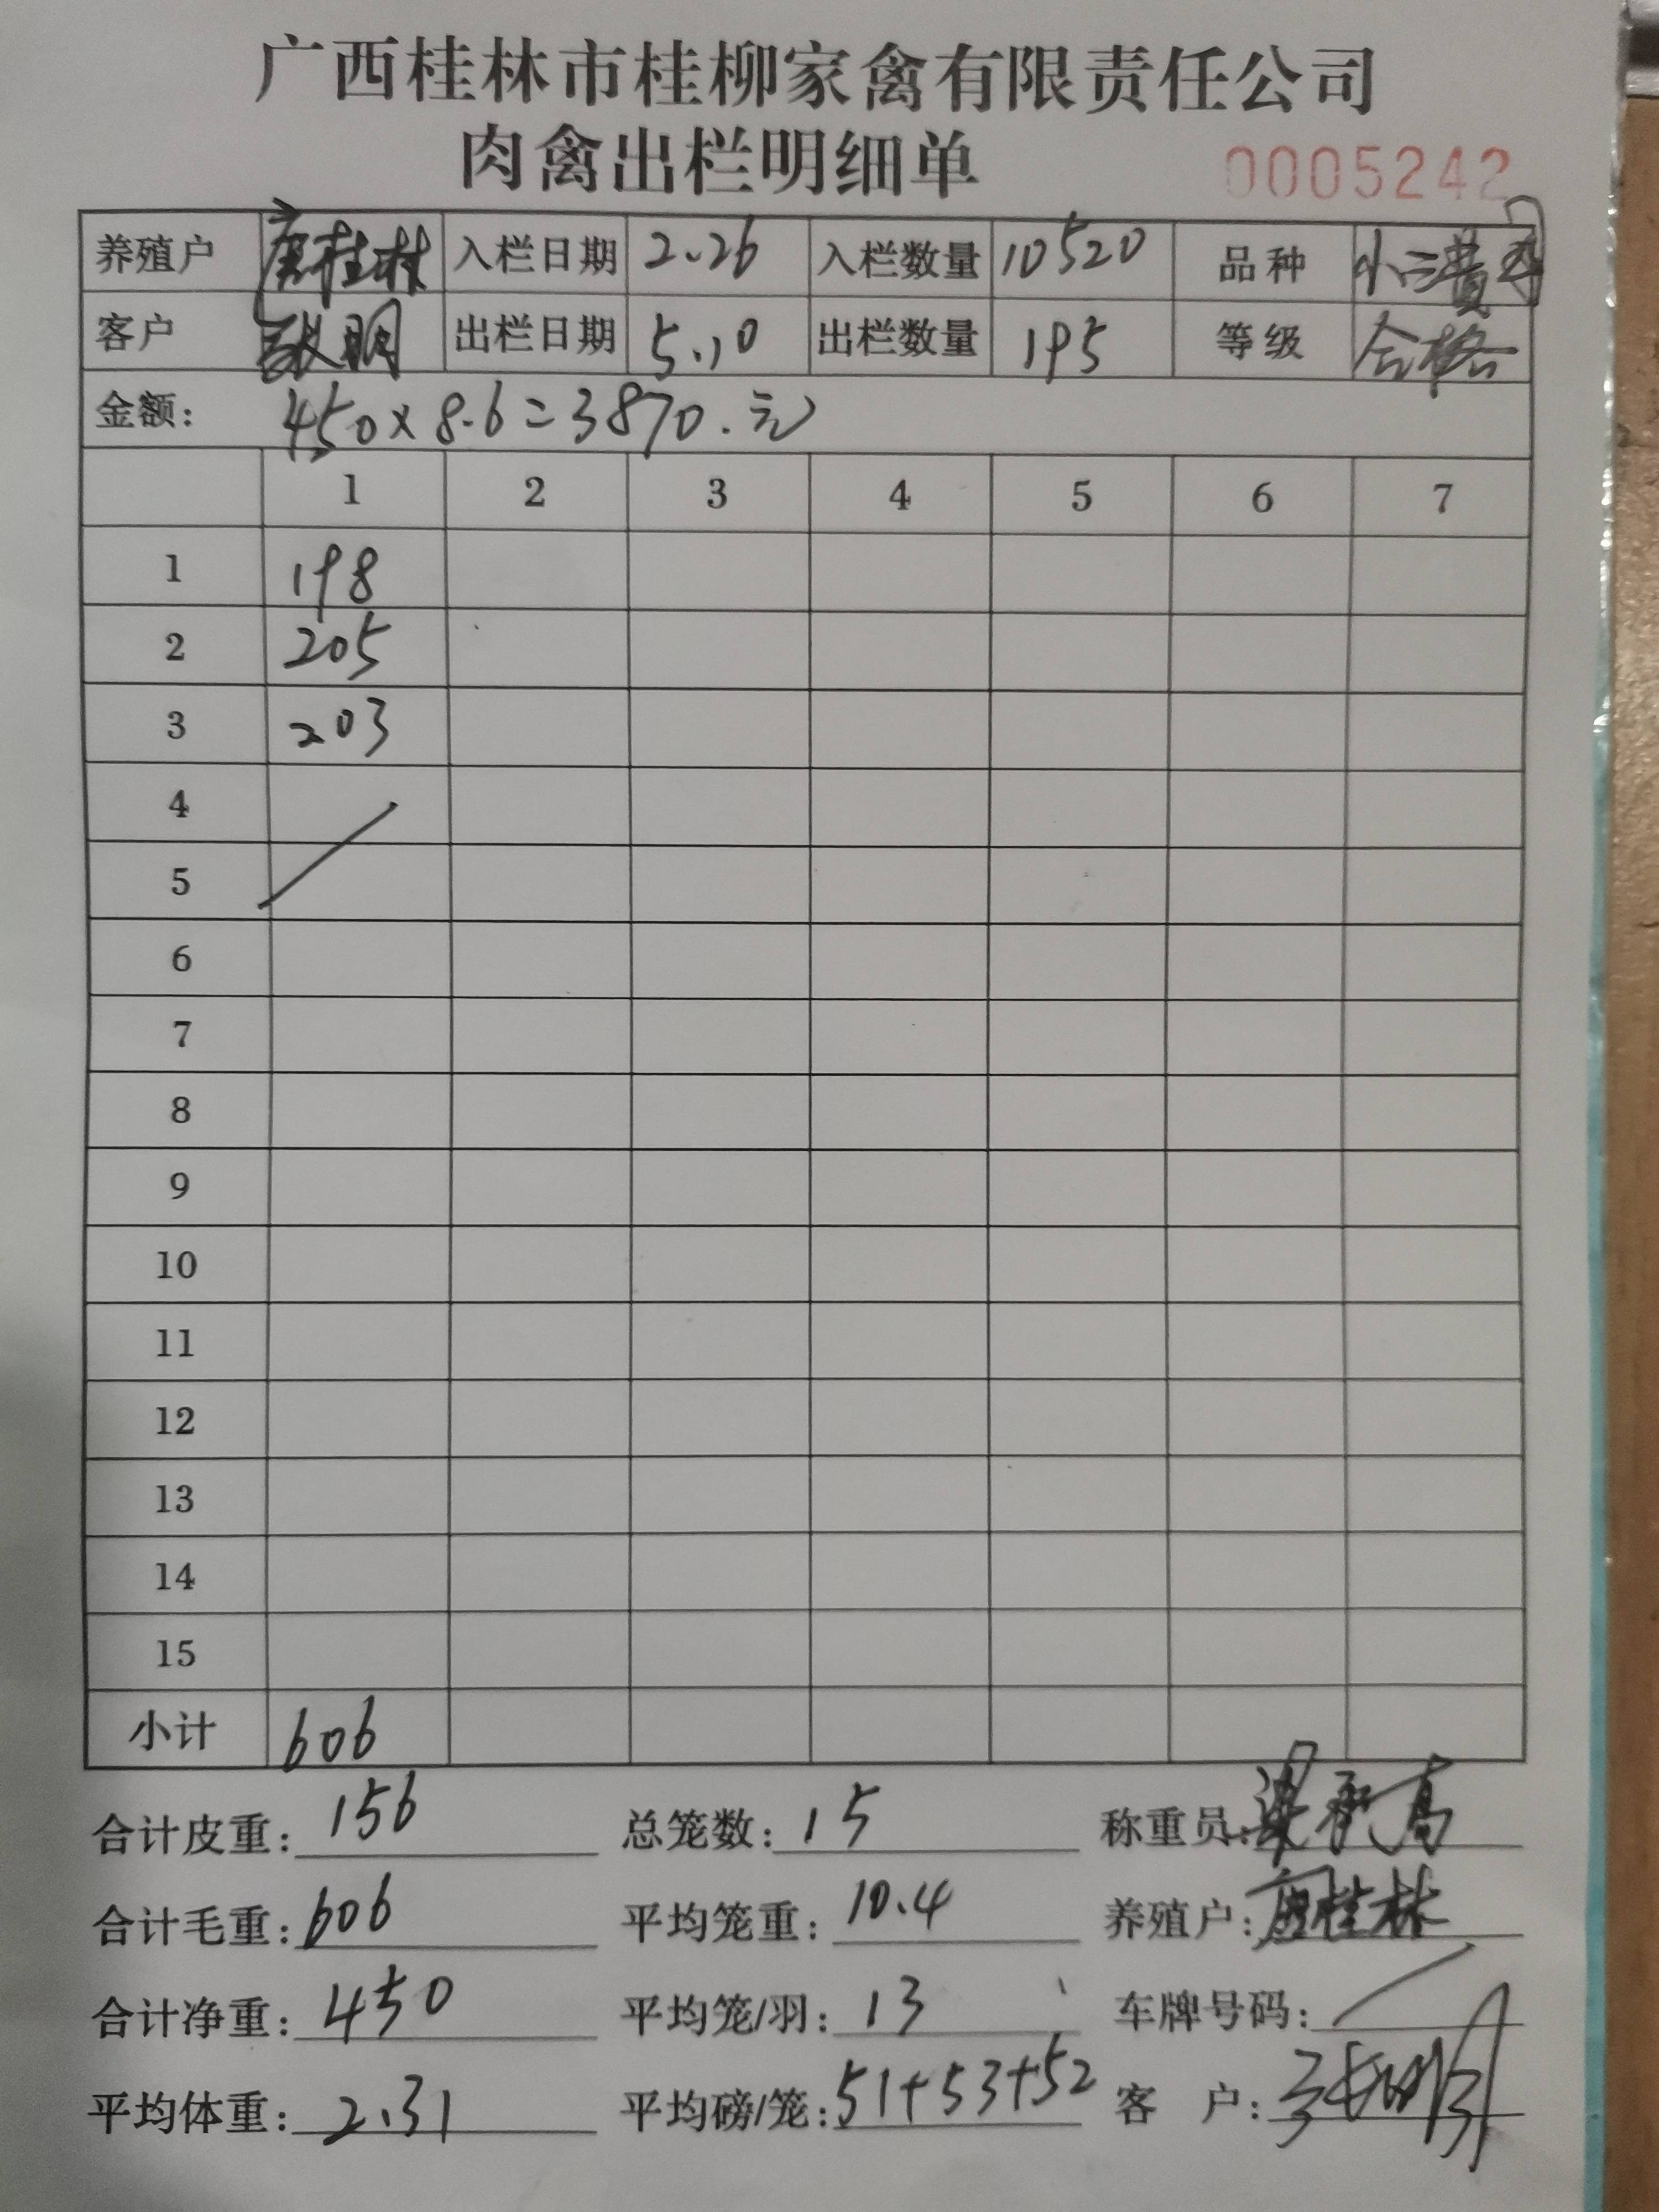 广西桂林市桂柳家禽有限责任公司
肉禽出栏明细单 0005242
养殖户 唐桂林 入栏日期 2.26 入栏数量 10520 品种 小三黄
客户 张明 出栏日期 5.10 出栏数量 195 等级 合格
金额: 450×8.6=3870.元
1 2 3 4 5 6 7
1 198
2 205
3 203
4
5
6
7
8
9
10
11
12
13
14
15
小计 606
合计皮重: 156 总笼数: 15 称重员:
合计毛重: 606 平均笼重: 10.4 养殖户: 唐桂林
合计净重: 450 平均笼/羽: 13 车牌号码:
平均体重: 2.31 平均磅/笼: 51+53+52 客 户: 张明